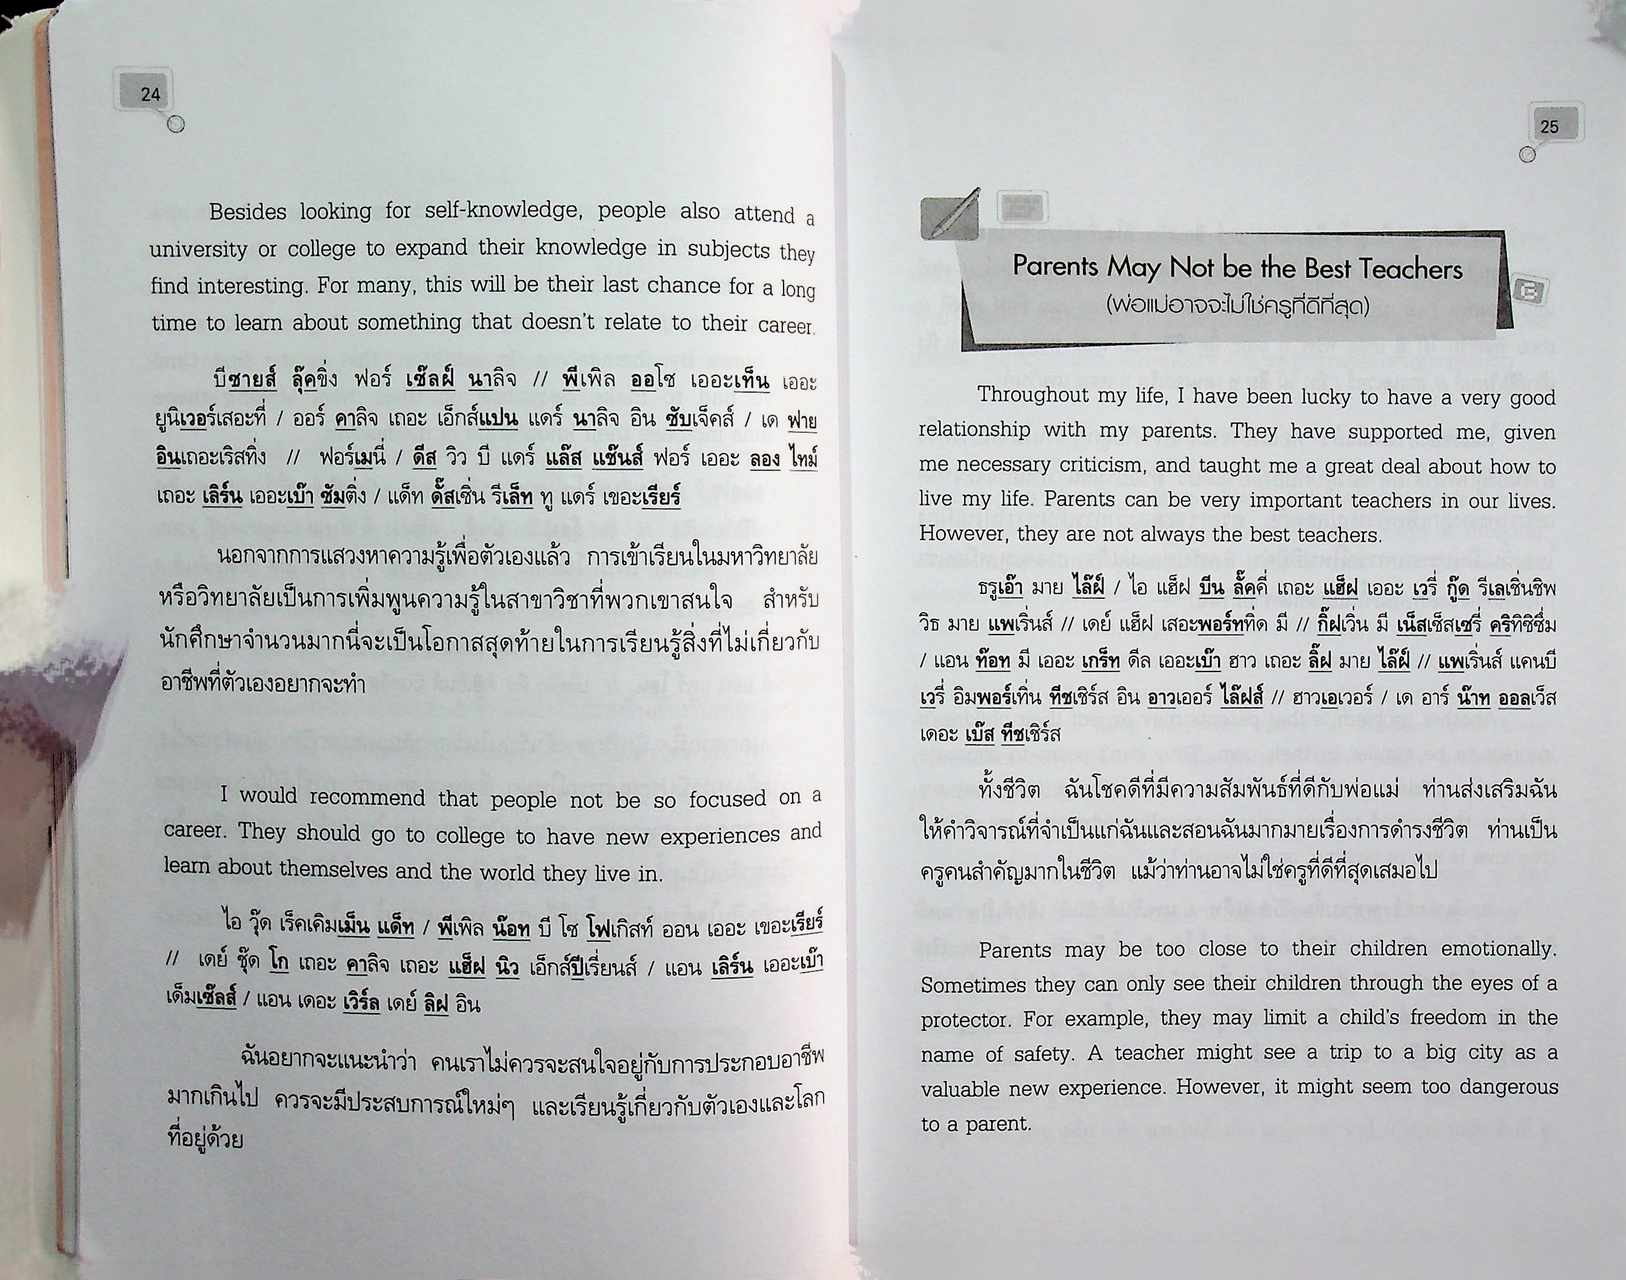 24
Besides looking for self-knowledge, people also attend a
university or college to expand their knowledge in subjects they
find interesting. For many, this will be their last chance for a long
time to learn about something that doesn't relate to their career.
บีซายส์ ลุ๊คขิ่ง ฟอร์ เซ๊ลฝ์ นาลิจ // พีเพิล ออโซ เออะเท็น เออะ
ยูนิเวอร์เสอะที่ / ออร์ คาลิจ เถอะ เอ็กส์แปน แดร์ นาลิจ อิน ซับเจ็คส์ / เด ฟาย
อินเถอะเริสทิ่ง // ฟอร์เมนี่ / ดีส วิว บี แดร์ แล๊ส แช๊นส์ ฟอร์ เออะ ลอง ไทม์
เถอะ เลิร์น เออะเบ๊า ซัมติ่ง / แด็ท ดั๊สเซิ่น รีเล็ท ทู แดร์ เขอะเรียร์
นอกจากการแสวงหาความรู้เพื่อตัวเองแล้ว การเข้าเรียนในมหาวิทยาลัย
หรือวิทยาลัยเป็นการเพิ่มพูนความรู้ในสาขาวิชาที่พวกเขาสนใจ สำหรับ
นักศึกษาจำนวนมากนี่จะเป็นโอกาสสุดท้ายในการเรียนรู้สิ่งที่ไม่เกี่ยวกับ
อาชีพที่ตัวเองอยากจะทำ
I would recommend that people not be so focused on a
career. They should go to college to have new experiences and
learn about themselves and the world they live in.
ไอ วุ๊ด เร็คเคิมเม็น แด็ท / พีเพิล น๊อท บี โซ โฟเกิสท์ ออน เออะ เขอะเรียร์
// เดย์ ชุ๊ด โก เถอะ คาลิจ เถอะ แฮ็ฝ นิว เอ็กส์ปีเรี่ยนส์ / แอน เลิร์น เออะเบ๊า
เด็มเซ๊ลส์ / แอน เดอะ เวิร์ล เดย์ ลิฝ อิน
ฉันอยากจะแนะนำว่า คนเราไม่ควรจะสนใจอยู่กับการประกอบอาชีพ
มากเกินไป ควรจะมีประสบการณ์ใหม่ๆ และเรียนรู้เกี่ยวกับตัวเองและโลก
ที่อยู่ด้วย
25
Parents May Not be the Best Teachers
(พ่อแม่อาจจะไม่ใช่ครูที่ดีที่สุด)
Throughout my life, I have been lucky to have a very good
relationship with my parents. They have supported me, given
me necessary criticism, and taught me a great deal about how to
live my life. Parents can be very important teachers in our lives.
However, they are not always the best teachers.
ธรูเอ๊า มาย ไล๊ฝ์ / ไอ แฮ็ฝ บีน ลั๊คคี่ เถอะ แฮ็ฝ เออะ เวรี่ กู๊ด รีเลเชิ่นชิพ
วิธ มาย แพเริ่นส์ // เดย์ แฮ็ฝ เสอะพอร์ททิ่ด มี // กิ๊ฝเวิ่น มี เน็สเซ็สเซรี่ คริทิซิซึ่ม
/ แอน ท๊อท มี เออะ เกร็ท ดีล เออะเบ๊า ฮาว เถอะ ลิ๊ฝ มาย ไล๊ฝ์ // แพเริ่นส์ แคนบี
เวรี่ อิมพอร์เทิ่น ทีชเชิร์ส อิน อาวเออร์ ไล๊ฝส์ // ฮาวเอเวอร์ / เด อาร์ น๊าท ออลเว็ส
เดอะ เบ๊ส ทีชเชิร์ส
ทั้งชีวิต ฉันโชคดีที่มีความสัมพันธ์ที่ดีกับพ่อแม่ ท่านส่งเสริมฉัน
ให้คำวิจารณ์ที่จำเป็นแก่ฉันและสอนฉันมากมายเรื่องการดำรงชีวิต ท่านเป็น
ครูคนสำคัญมากในชีวิต แม้ว่าท่านอาจไม่ใช่ครูที่ดีที่สุดเสมอไป
Parents may be too close to their children emotionally.
Sometimes they can only see their children through the eyes of a
protector. For example, they may limit a child's freedom in the
name of safety. A teacher might see a trip to a big city as a
valuable new experience. However, it might seem too dangerous
to a parent.